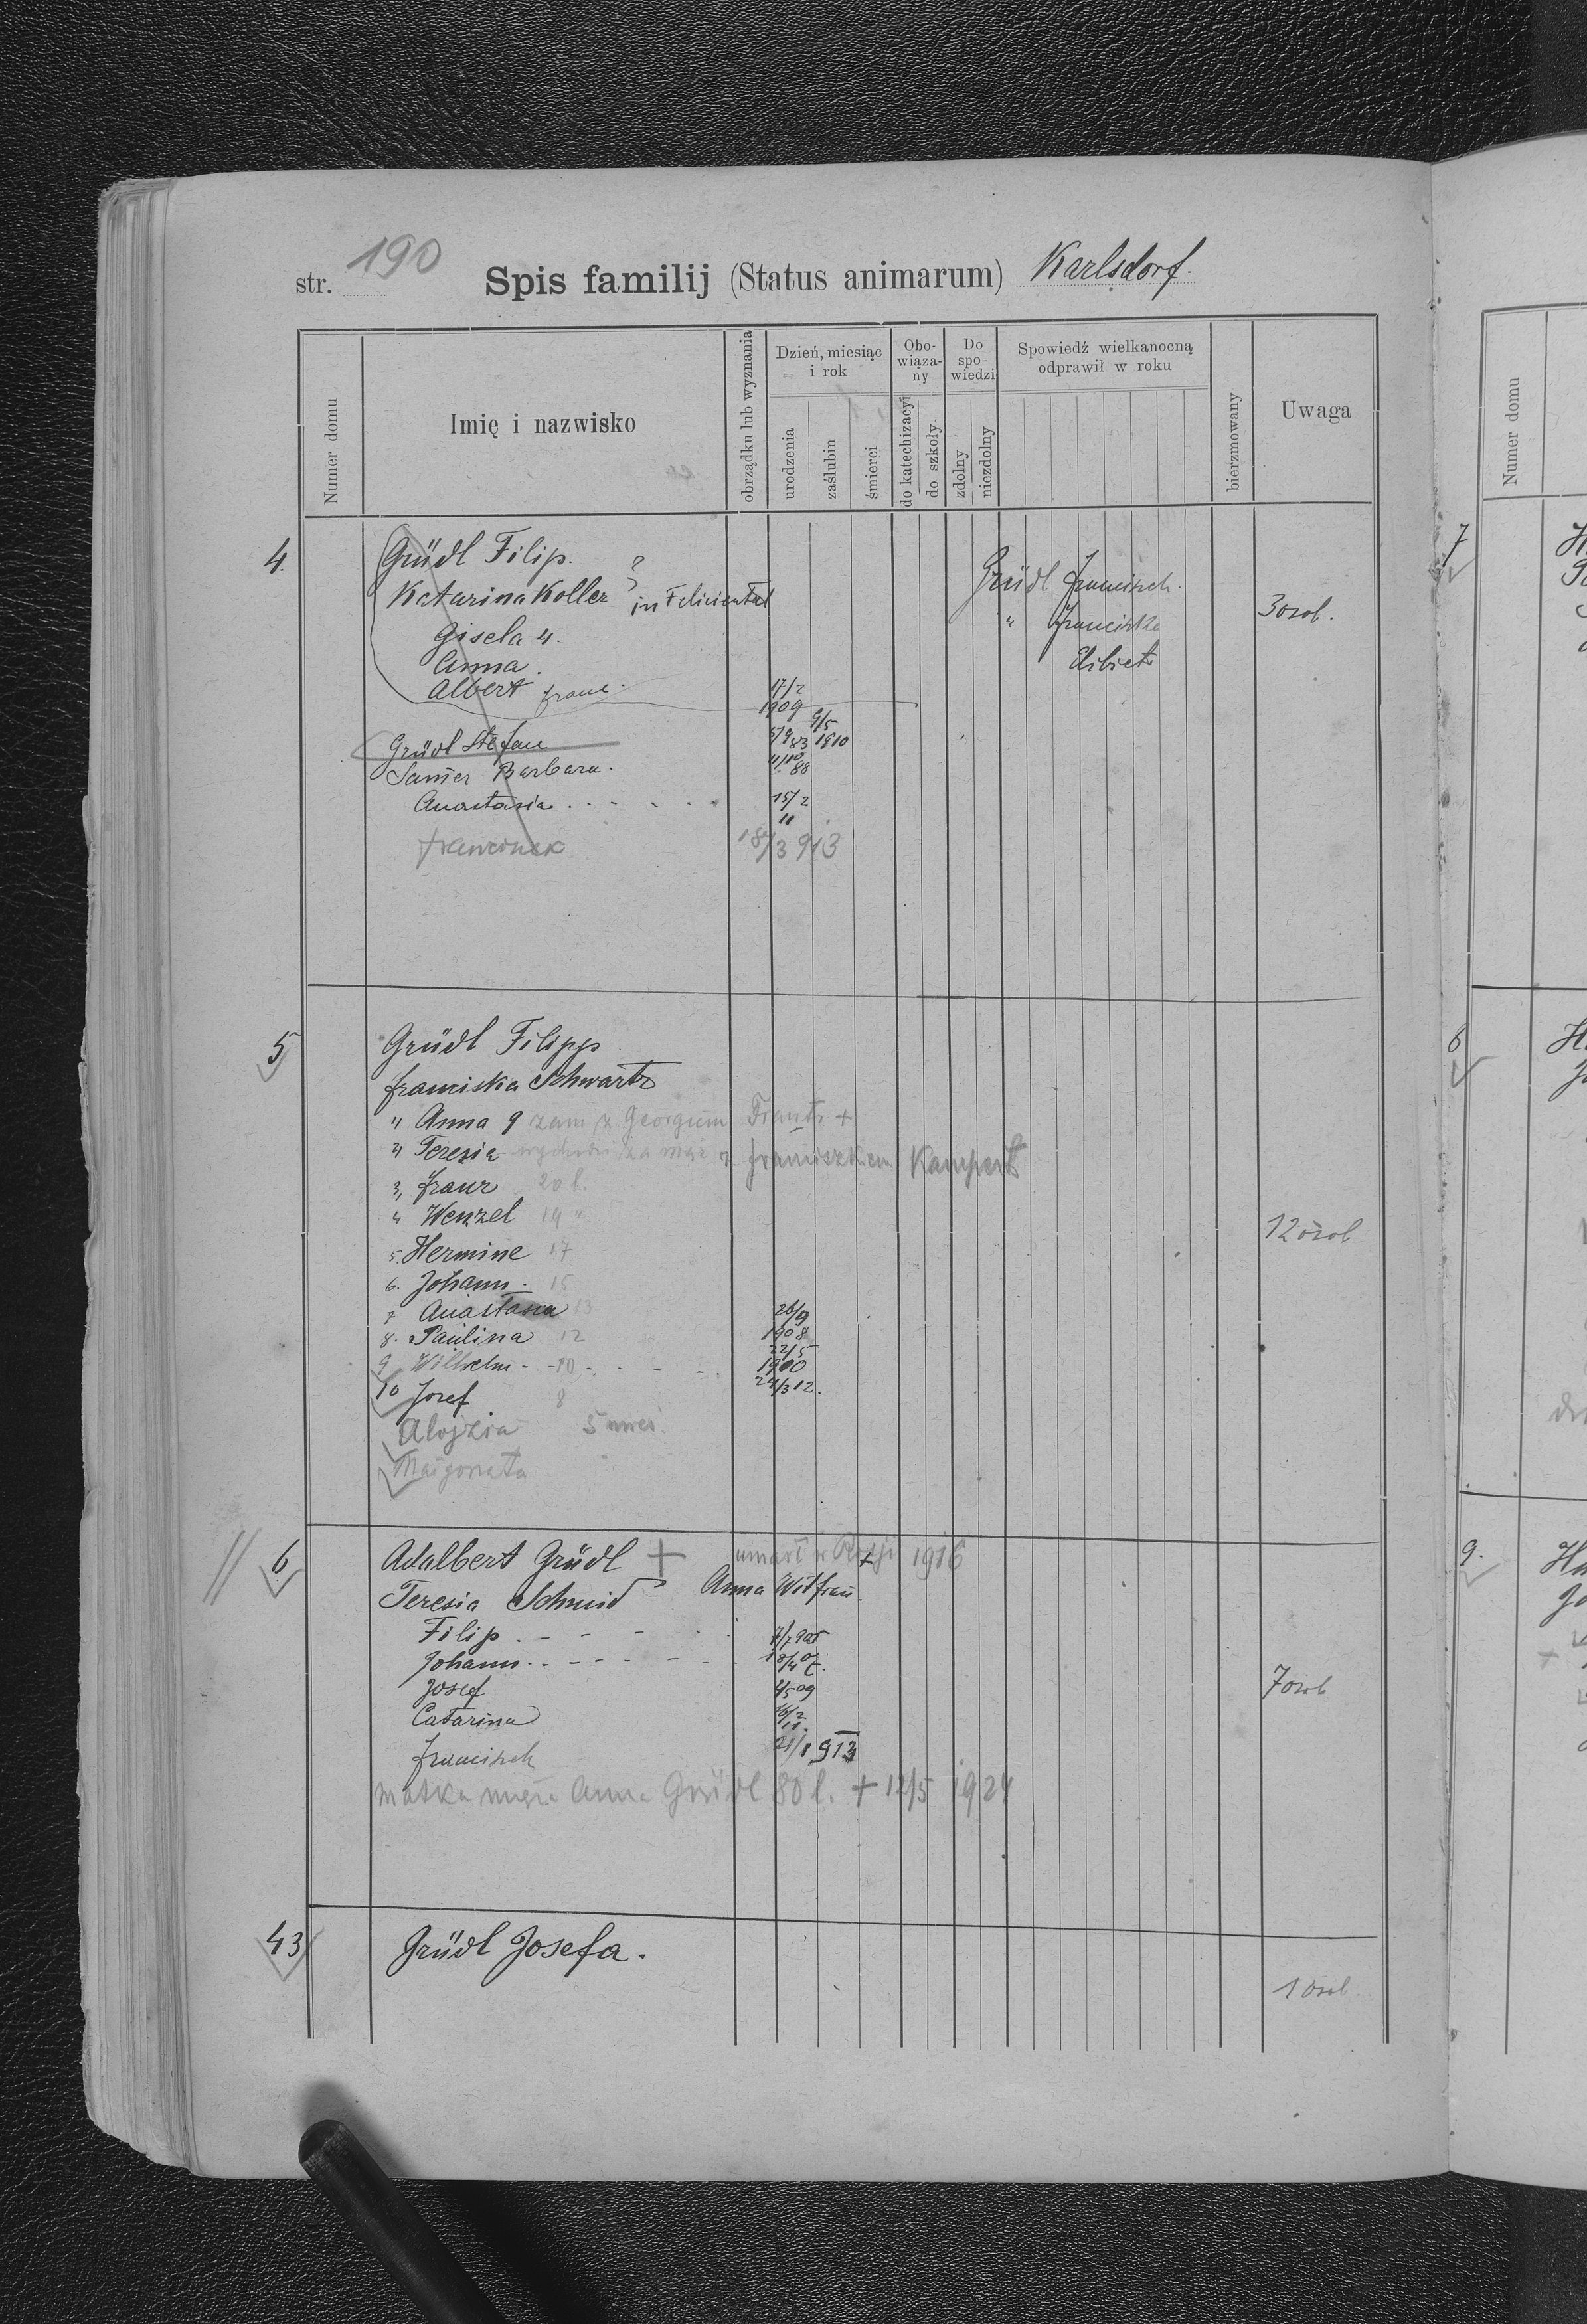 str. 190 Spis familij (Status animarum) Karlsdorf.
Numer domu
Imię i nazwisko
obrządku lub wyznania
Dzień, miesiąc i rok
urodzenia
zaślubin
śmierci
Obo-
wiąza-
ny
do katechizacyi
do szkoły
Do
spo-
wiedzi
zdolny
niezdolny
Spowiedź wielkanocną
odprawił w roku
bierzmowany
Uwaga
4.
Grüdl Filip. ?
Katarina Koller in Felicienthal
Gisela 4.
Anna
Albert franc. 17/2 1909
Grüdl Francisch.
" Franciska
Elibiet
3 osob.
Grüdl Stefan 5/9 83 9/5 1910
Samer Barbara. 11/10 88
Anastasia 15/2 11
Franciszek 18/3 913
5
Grüdl Filipp
Franciska Schwartz
" Anna 9 zam z Georgium Frantz +
" Teresia wychodzi za mąż z Franciszkem Kampert
3, Franz 20 l.
4 Wenzel 19 "
5. Hermine 17
6. Johann 15
7 Anastasia 13
8. Paulina 12 26/9 1908
9 Wilhelm 10 22/5 1900
10 Josef 8 24/3 12.
Alojzia 5 mies.
Małgorzata
12 osob
6
Adalbert Grüdl + umarł w Rosji 1916
Teresia Schmid Anna Witfrau.
Filip 7/7 905
Johann 18/4 07.
Josef 2/5 09
Catarina 16/2 11.
Francisch 21/1 913
matka męża Anna Grüdl 80 l. + 12/5 1924
7 osob
43
Grüdl Josefa.
1 osob.
7
8
9.
Numer domu